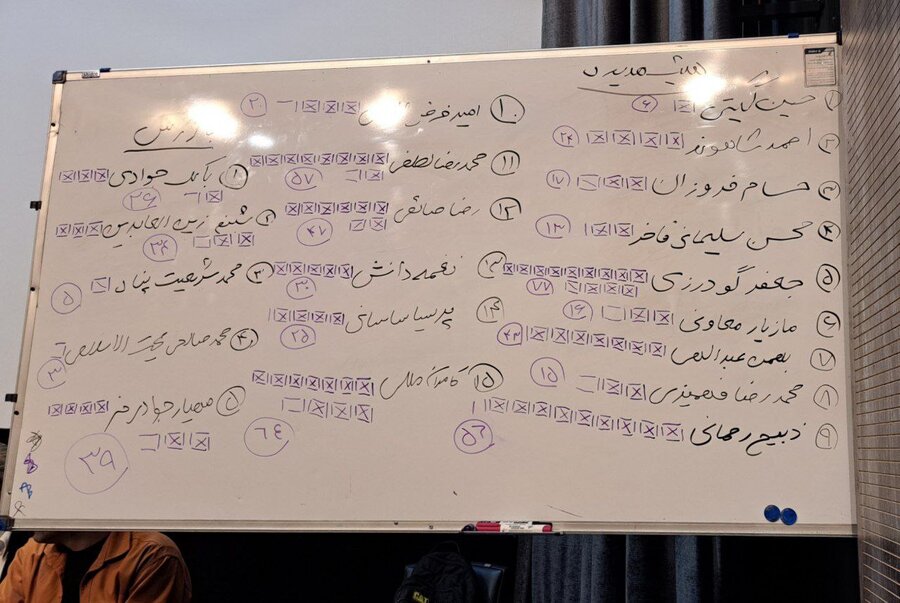 هیئت مدیره
۱ حسین گیتی ۶
۲ احمد شاهوند ۲۴
۳ حسام فروزان ۱۷
۴ محسن سلیمانی فاخر ۱۲
۵ جعفر گودرزی ۷۷
۶ مازیار معاونی ۱۶
۷ بهمن عبداللهی ۴۳
۸ محمدرضا فهمیزی ۱۵
۹ ذبیح رحمانی ۵۶
۱۰ امید فرض ۲۰
۱۱ محمدرضا لطفی ۵۷
۱۲ رضا صائمی ۴۷
۱۳ نغمه دانش
۱۴ پریسا ساسانی ۲۵
۱۵ ۶۴
بازرس
۱ بابک جوادی ۲۹
۲ شبنم زین العابدین ۳۴
۳ محمد شریعت پناه ۵
۴ محمد صالح حجت الاسلامی ۳
۵ مهیار جوادی فر ۳۹
CAT